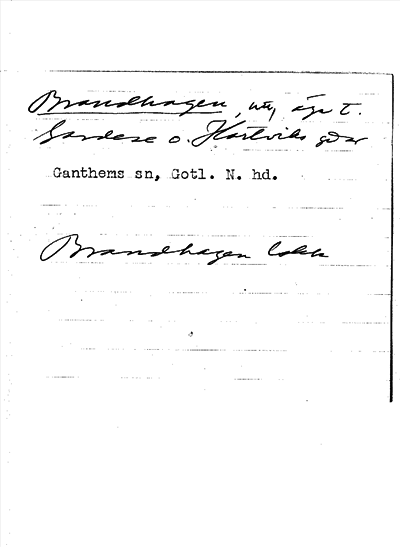 Brandhagen, äga t.
Gardese o. Hartviks gdar
Ganthems sn, Gotl. N. hd.
Brandhagen